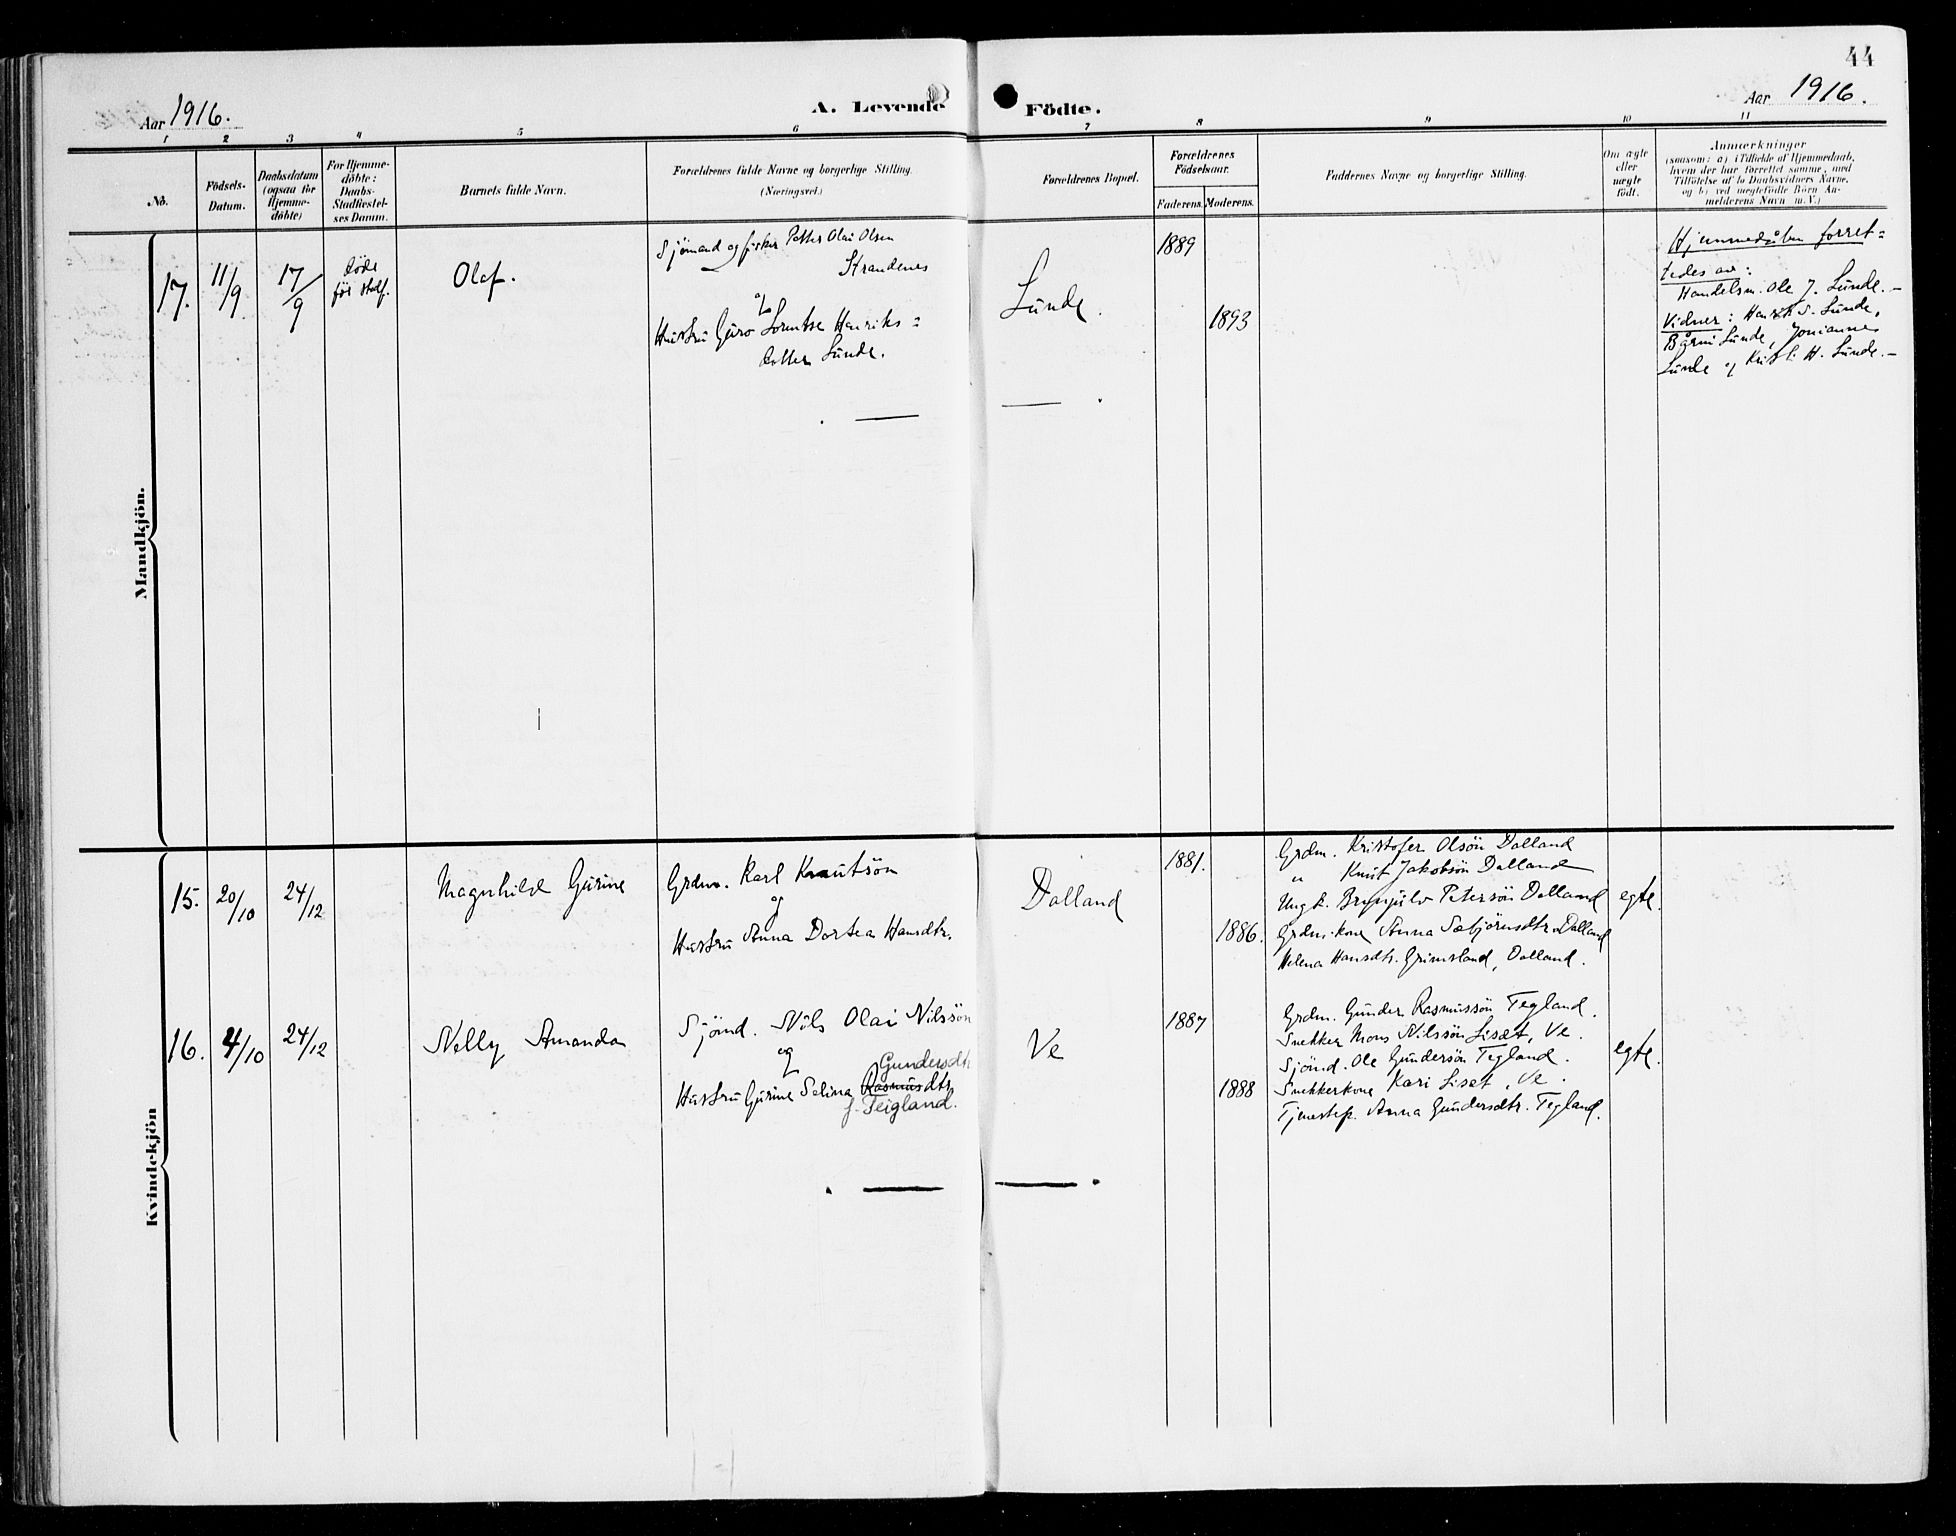 44
Aar 1916.
A. Levende Födte.
Aar 1916.
1 2 3 4 5 6 7 8 9 10 11
No.
Födsels-
Datum.
Daabsdatum
(ogsaa for
Hjemme-
döbte)
For Hjemme-
döbte:
Daabs-
Stadfæstel-
ses Datum.
Barnets fulde Navn.
Forældrenes fulde Navne og borgerlige Stilling.
(Næringsvei.)
Forældrenes Bopæl.
Forældrenes
Födselsaar.
Faderens. Moderens.
Faddernes Navne og borgerlige Stilling.
Om ægte
eller
uægte
födt.
Anmærkninger
(saasom: a) i Tilfælde af Hjemmedaab,
hvem der har forrettet samme, med
Tilföielse af to Daabsvidners Navne,
og b) ved uægtefödte Börn An-
melderens Navn m. V.)
Mandkjön.
17.
11/9
17/9
døde
før stadf.
Olaf.
Sjömand og fisker Petter Olai Olsen
Strandenes
og
Hustru Guro Lorentse Henriks=
dotter Lunde.
Lunde.
1889
1893
Hjemmedåben forret=
tedes av:
Handelsm. Ole J. Lunde.-
Vidner: S. Lunde,
Lunde,
Lunde og H. Lunde.-
Kvindekjön
15.
20/10
24/12
Magnhild Gurine
Grdm. Karl Knutsön
og
Hustru Anna Dortea Hansdtr.
Dalland
1881.
1886.
Grdm. Kristofer Olsön Dalland
" Knut Jakobsön Dalland
Ungk. Brynjulv Petersön Dalland
Grdm.kone Anna Sæbjörnsdtr. Dalland
Helena Hansdtr. Grimsland, Dalland.
egte.
16.
4/10
24/12
Nelly Amanda
Sjömd. Nils Olai Nilssön
og
Gundersdtr
Hustru Gurine Selina Rasmusdtr.
f. Teigland.
Ve
1887
1888
Grdm. Gunder Rasmussön Tegland.
Snekker Mons Nilssön Liset, Ve.
Sjömd. Ole Gundersön Tegland.
Snekkerkone Kari Liset, Ve.
Tjenestep. Anna Gundersdtr. Tegland.
egte.